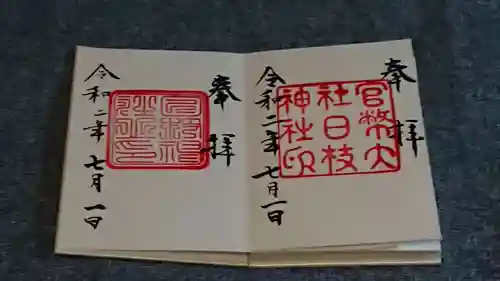 奉拝
官幣大
社日枝
神社印
令和二年七月一日
奉拝
令和二年七月一日